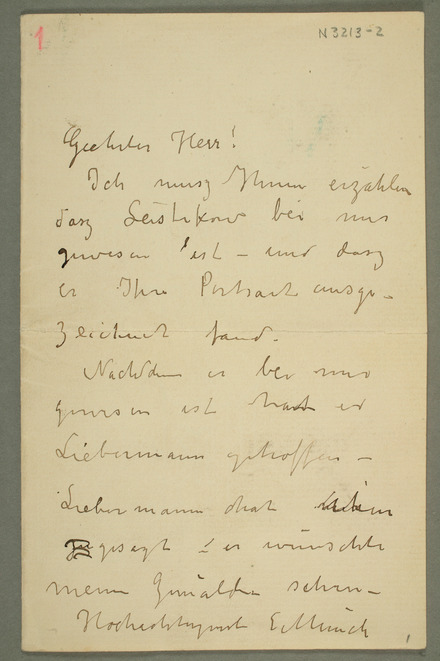 1
N3213-2
Geehrter Herr!
Ich musz Ihnen erzählen
dasz Leistikow bei mir
gewesen ist – und dasz
er Ihre Portrait ausge-
zeichnet fand.
Nachdem er bei mir
gewesen ist hat er
Liebermann getroffen –
Liebermann hat ihm
gesagt – er wünschte
meine Gemälde sehen –